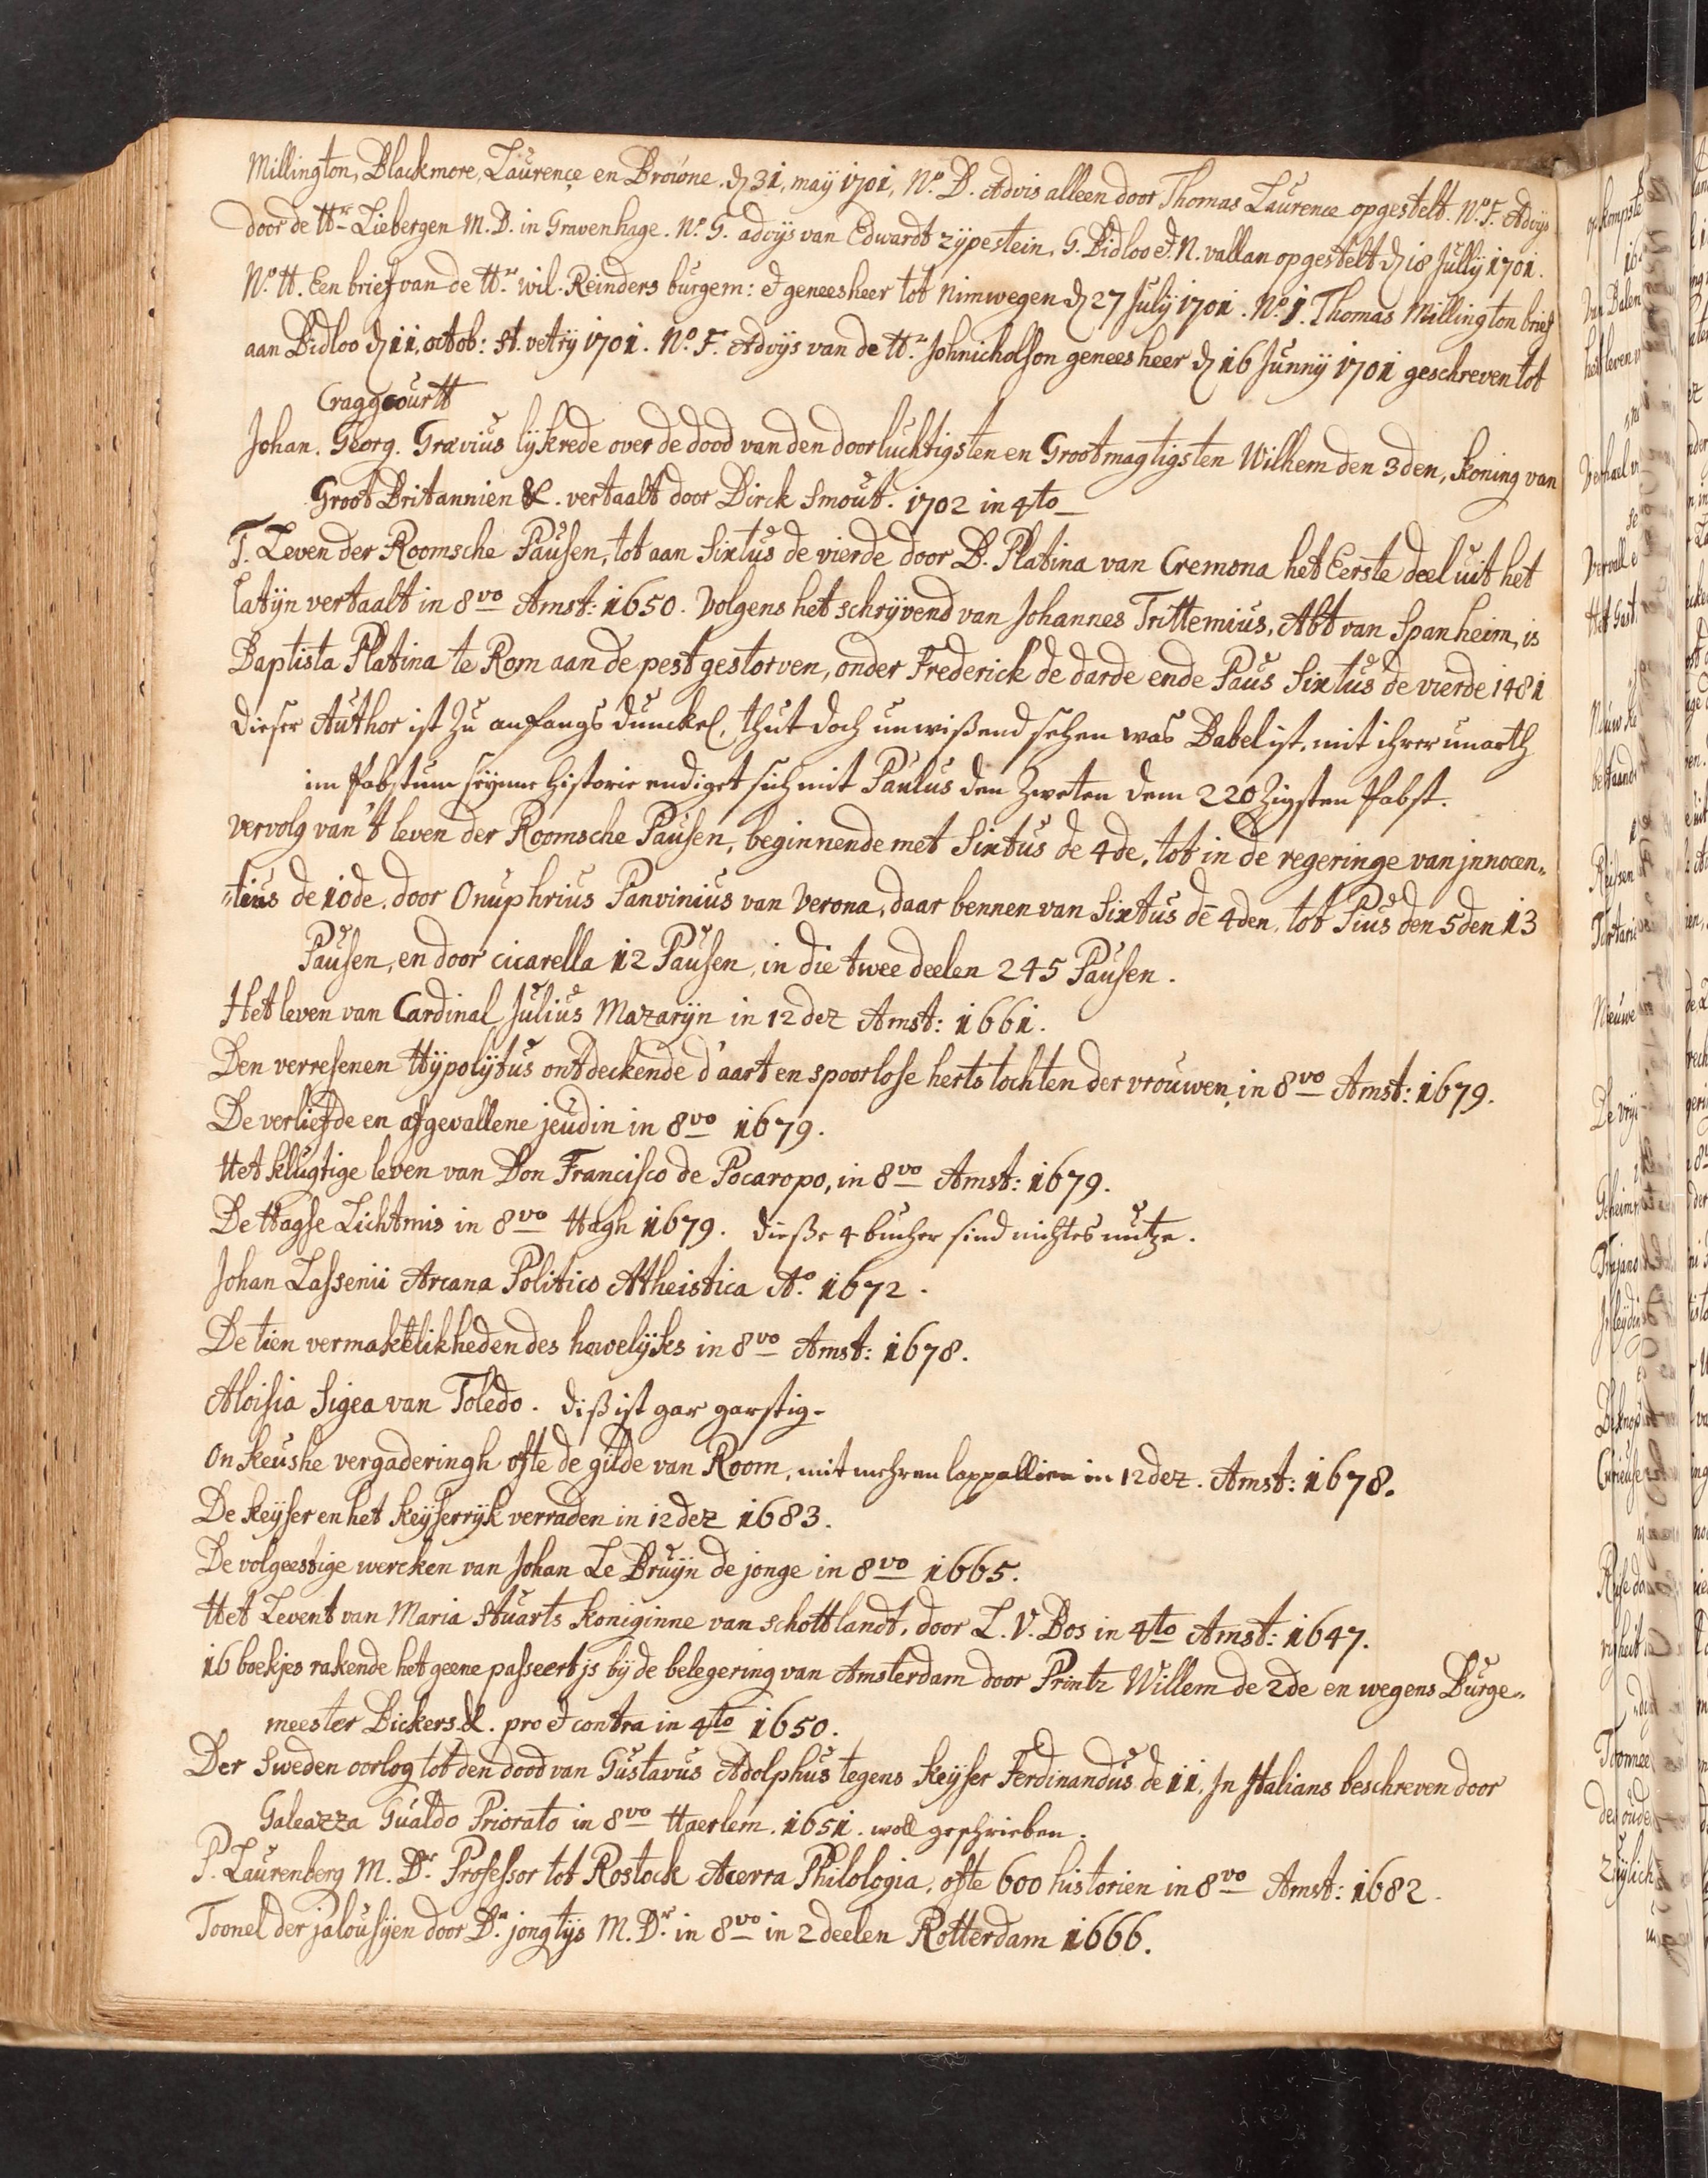 Millington, Blackmore, Laurence en Browne. d. 31, maÿ 1701, No. D. Advis alleen door Thomas Laurence opgestelt. No. F. Advÿs
door de Hr. Liebergen M. D. in Gravenhage. No. G. advÿs van Edwardt zÿpestein, G. Bidloo et N. vallan opgestelt d. 18 Jullÿ 1701.
No. H. Een brief van de Hr. wil. Reinders burgem: et geneesheer tot Nimwegen d. 27 Julÿ 1701. No. J. Thomas Millington brief
aan Bidloo d. 11, octob: St. vetrÿ 1701. No. F. Advÿs van de Hr. Johnicholson geneesheer d. 16 Junnÿ 1701 geschreven tot
Craggcourtt
Johan. Georg. Grævius lÿkrede over de dood van den doorluchtigsten en Grootmagtigsten Wilhem den 3den, Koning van
Groot Britannien &. vertaalt door Dirck Smout. 1702 in 4to
T. Leven der Roomsche Pausen, tot aan Sixtus de vierde door B. Platina van Cremona het Eerste deel uit het
Latÿn vertaalt in 8vo Amst: 1650. Volgens het schrÿvend van Johannes Trittemius, Abt van Spanheim, is
Baptista Platina te Rom aan de pest gestorven, onder Frederick de darde ende Paus Sixtus de vierde 1481
Dieser Author ist zu anfangs dunckel, thut doch unwißend sehen was Babel ist, mit ihrer unarth
im Pabstum seÿnne historie endiget sich mit Paulus den Zweten dem 220zigsten Pabst.
vervolg van't leven der Roomsche Pausen, beginnende met Sixtus de 4de, tot in de regeringe van jnnocen„
„tius de 10de. door Onuphrius Panvinius van Verona, daar bennen van Sixtus de 4den, tot Pius den 5den 13
Pausen, en door cicarella 12 Pausen, in die twee deelen 245 Pausen.
Het leven van Cardinal Julius Mazarÿn in 12dez Amst: 1661.
Den verresenen Hÿpolÿtus ontdeckende d'aart en spoorlose herts tochten der vrouwen, in 8vo Amst: 1679.
De verliefde en afgevallene jeudin in 8vo 1679.
Het klugtige leven van Don Francisco de Pocaropo, in 8vo Amst: 1679.
De Hagse Lichtmis in 8vo Hagh 1679. Dieße 4 bucher sind nichtes nutze.
Johan Lassenii Arcana Politico Atheistica Ao. 1672.
De tien vermakelikheden des howelÿks in 8vo Amst: 1678.
Aloisia Sigea van Toledo. Diß ist gar garstig.
Onkeushe vergaderingh ofte de gilde van Room, mit mehren lappallien in 12dez. Amst: 1678.
De keÿser en het keÿserrÿk verraden in 12dez 1683.
De volgeestige wercken van Johan Le Bruÿn de jonge in 8vo 1665.
Het Levent van Maria Stuarts Koniginne van Schottlandt, door L. V. Bos in 4to Amst: 1647.
16 boekjes rakende het geene passeert js bÿ de belegering van Amsterdam door Printz Willem de 2de en wegens Burge„
meester Bickers &. pro et contra in 4to 1650.
Der Sweden oorlog tot den dood van Gustavus Adolphus tegens Keÿser Ferdinandus de 11, Jn Jtalians beschreven door
Galeazza Gualdo Priorato in 8vo Haerlem. 1651. woll geschrieben.
P. Laurenberg M. Dr. Professor tot Rostock Acerra Philologia, ofte 600 historien in 8vo Amst: 1682.
Toonel der jalousÿen door Dr. jongtÿs M. Dr. in 8vo in 2 deelen Rotterdam 1666.